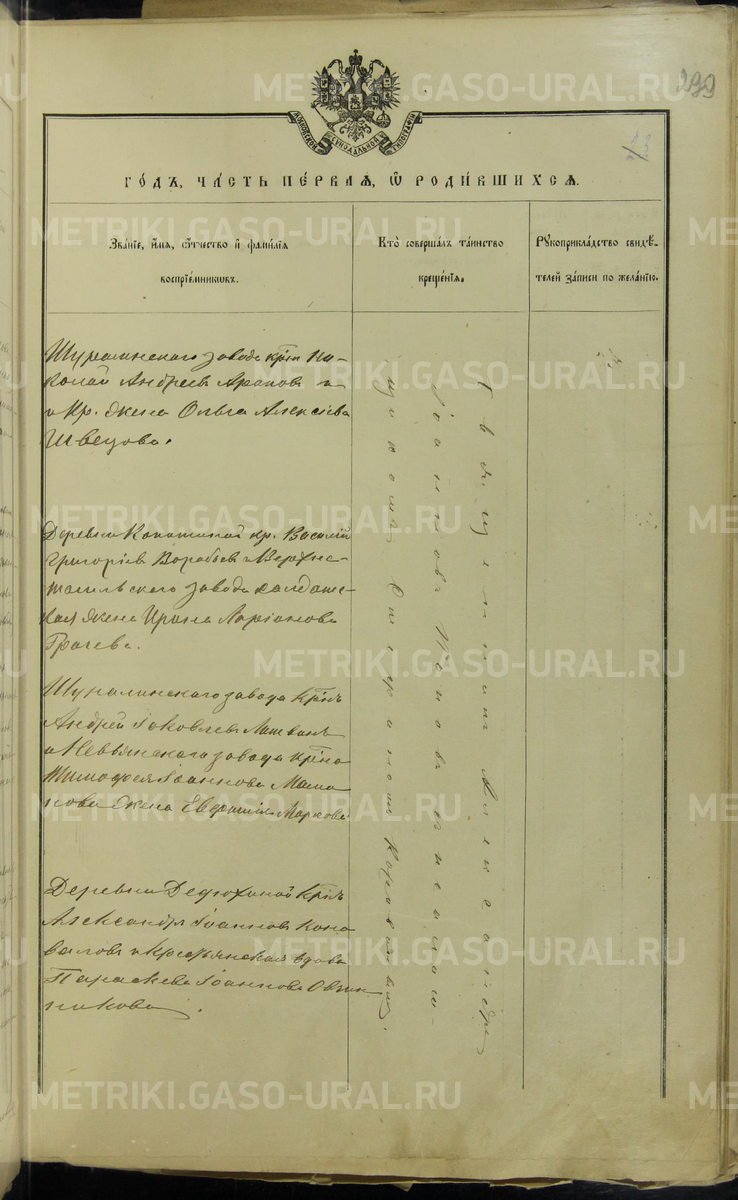 299
13
МОСКОВСКОЙ СѴНОДАЛЬНОЙ ТИПОГРАФІИ
ГОДЪ, ЧАСТЬ ПЕРВАЯ, Ѡ РОДИВШИХСЯ.
Званіе, имя, отчество и фамилія
воспріемниковъ.
Кто совершалъ таинство
крещенія.
Рукоприкладство свидѣ-
телей записи по желанію.
Шуралинскаго завода кр҃нъ Ни-
колай Андреевъ Араповъ и
и кр. жена Ольга Алексіева
Швецова.
Деревни Копотиной кр. Василій
Григоріевъ Воробьевъ и Верхне-
тагильскаго завода солдат-
ская жена Ирина Ларіонова
Грачева.
Шуралинскаго завода кр҃нъ
Андрей Іаковлевъ
и Невьянскаго завода кр҃на
Тимофея Іоаннова Мама
нова жена Евдокія Маркова
Деревни Дедюхиной кр҃нъ
Александръ Іоанновъ Коно
валовъ и крестьянская вдова
Параскева Іоаннова Овчин
никова.
Священникъ Александръ
Іоанновъ Поповъ съ псалом-
щикомъ
METRIKI.GASO-URAL.RU